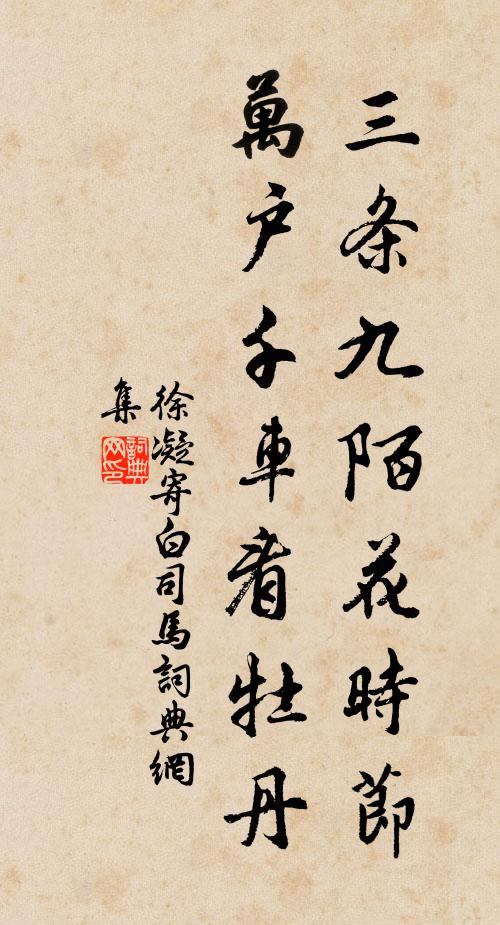 三条九陌花時節
萬户千車看牡丹
徐凝寄白司馬詞典網
集
詞典
网印